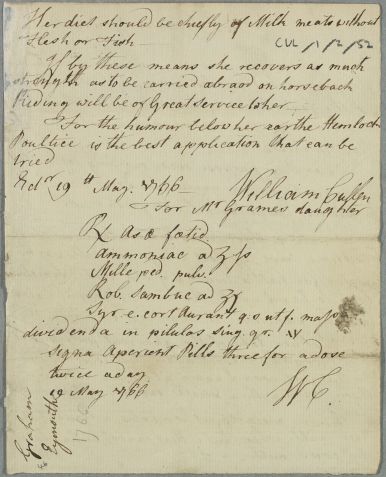 Her diet should be cheefly of Milk meats without
Flesh or Fish
CUL/1/2/52
If by these means she recovers as much
strength as to be carried abroad on horseback
Riding will be of Great service to her
For the humour below her ear the Hemlock
Poultice is the best application that can be
tried
Edr 19th May 1766 William Cullen
For Mr Grames daughter
Rx Asæ fœtid
ammoniac ad ʒſs
Mille ped. pulv.
Rob. Sambuc ad ʒj
Syr. e. cort Aurant q: s ut f. massa
dividenda in pilulas sing. gr. v
Signa Aperient Pills three for a dose
twice a day
19 May 1766
WC
Graham
Eymouth
1766